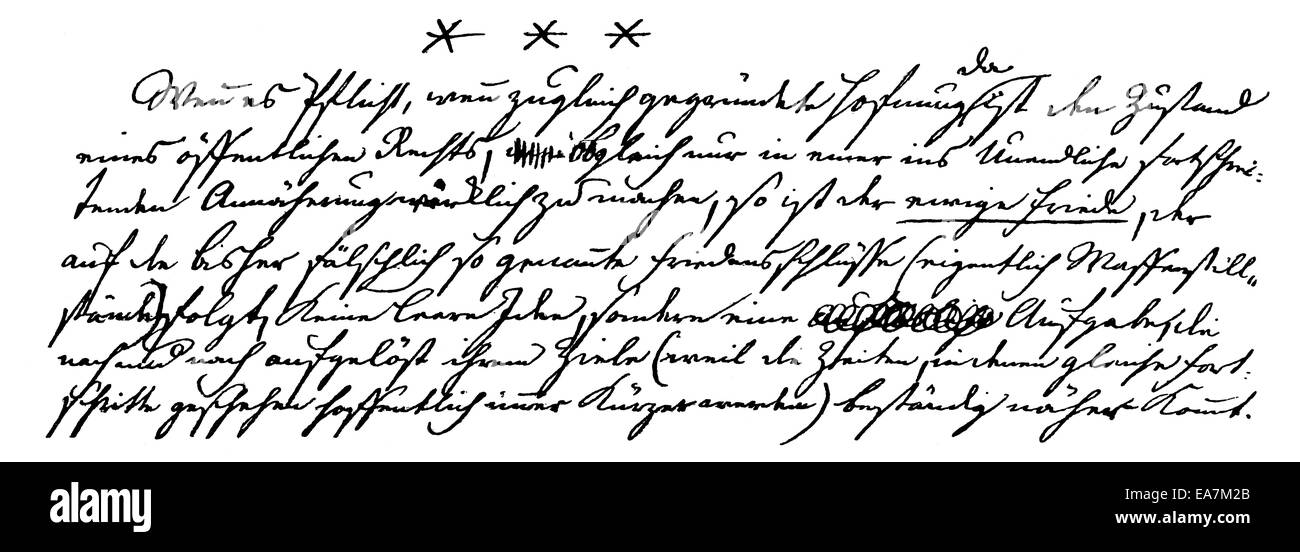 * * *
Wenn es Pflicht, wenn zugleich gegründete Hofnung da ist den Zustand
eines öffentlichen Rechts, obgleich nur in einer ins Unendliche fortschrei-
tenden Annäherung wirklich zu machen, so ist der ewige Friede, der
auf die bisher fälschlich so genannte Friedensschlüsse (eigentlich Waffenstill-
stände) folgt, keine leere Idee, sondern eine Aufgabe, die
nach und nach aufgelöst ihrem Ziele (weil die Zeiten, in denen gleiche Fort-
schritte geschehen hoffentlich immer kürzer werden) beständig näher kommt.
alamy stock photo
EA7M2B
www.alamy.com